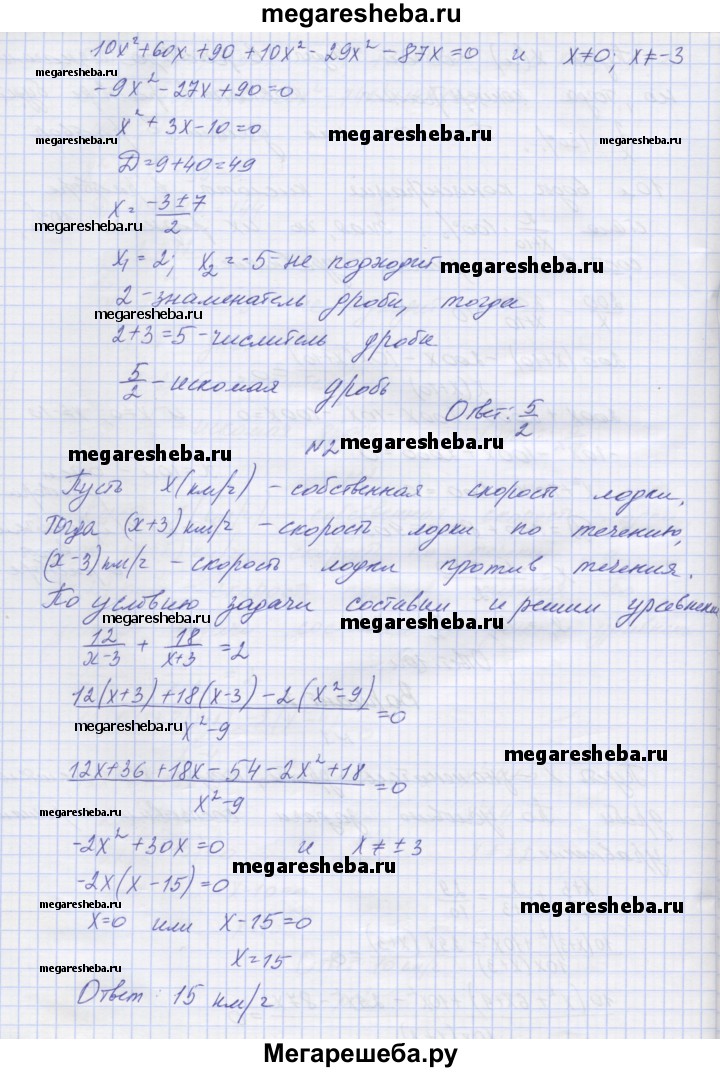 megaresheba.ru
10x² + 60x + 90 + 10x² - 29x² - 87x = 0 и x ≠ 0; x ≠ -3
megaresheba.ru
-9x² - 27x + 90 = 0
x² + 3x - 10 = 0
megaresheba.ru megaresheba.ru
Д = 9 + 40 = 49
x = (-3 ± 7)/2
megaresheba.ru
x₁ = 2; x₂ = -5 - не подходит
megaresheba.ru
2 - знаменатель дроби, тогда
megaresheba.ru
2 + 3 = 5 - числитель дроби
5/2 - искомая дробь
Ответ: 5/2
N2
megaresheba.ru megaresheba.ru
Пусть x (км/ч) - собственная скорость лодки.
Тогда (x+3) км/ч - скорость лодки по течению,
megaresheba.ru megaresheba.ru
(x-3) км/ч - скорость лодки против течения.
По условию задачи составим и решим уравнение
megaresheba.ru megaresheba.ru
12/(x-3) + 18/(x+3) = 2
(12(x+3) + 18(x-3) - 2(x²-9))/(x²-9) = 0
megaresheba.ru
megaresheba.ru
(12x + 36 + 18x - 54 - 2x² + 18)/(x²-9) = 0
megaresheba.ru
-2x² + 30x = 0 и x ≠ ±3
megaresheba.ru
-2x(x - 15) = 0
megaresheba.ru megaresheba.ru
x = 0 или x - 15 = 0
x = 15
megaresheba.ru
Ответ: 15 км/ч
megaresheba.ru
Мегарешеба.ру